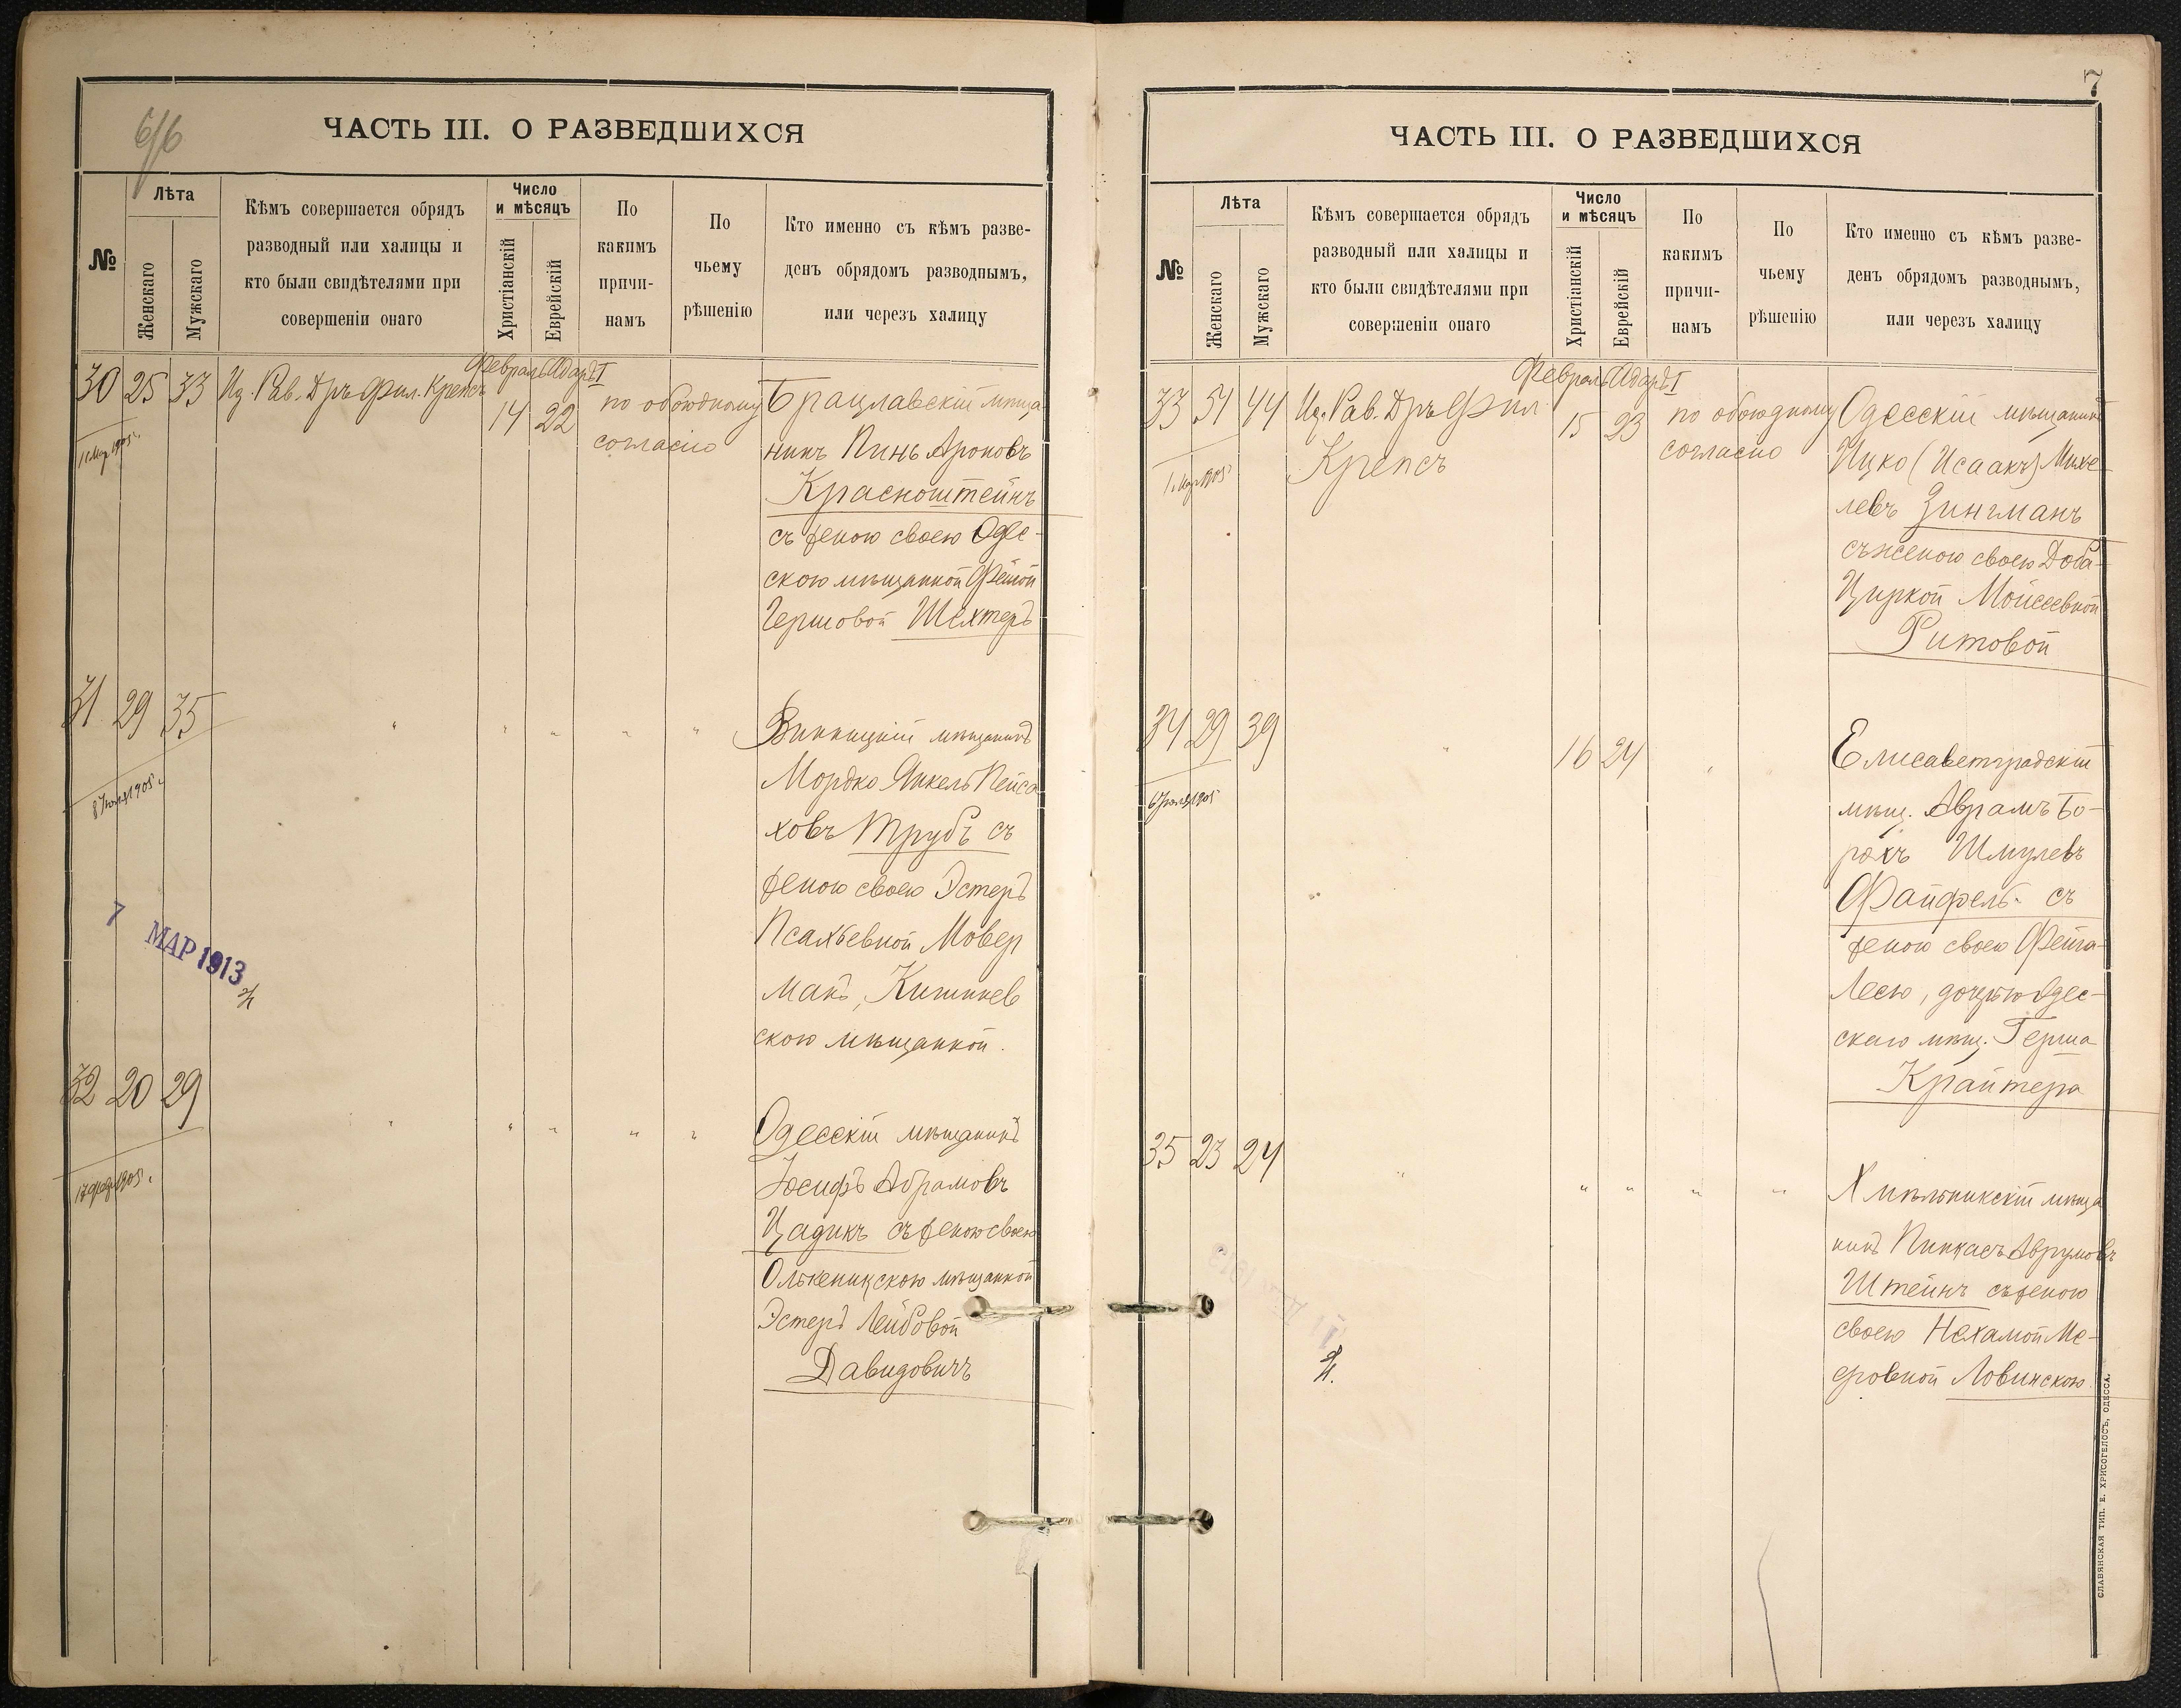 6/6
ЧАСТЬ III. О РАЗВЕДШИХСЯ
№
Лѣта
Женскаго
Мужскаго
Кѣмъ совершается обрядъ
разводный или халицы и
кто были свидѣтелями при
совершеніи онаго
Число
и мѣсяцъ
Христіанскій
Еврейскій
По
какимъ
причи-
намъ
По
чьему
рѣшенію
Кто именно съ кѣмъ разве-
денъ обрядомъ разводнымъ,
или черезъ халицу
Февраль Адаръ I
30 25 33 Ис. Рав. Дръ Фил. Крепсъ 14 22 по обоюдному
согласію
1 Мар 1905 г.
Брацлавскій мѣща
нинъ Пинь Ароновъ
Краснощтейнъ
съ женою своею Одес-
скою мѣщанкой Фейгой
Гершовой Шехтеръ
31 29 35 " " " " "
1905 г.
Винницкій мѣщанинъ
Мордко Янкель Пейса
ховъ Трубъ съ
женою своею Эстеръ
Псахьевной Мовер
манъ, Кишинев
скою мѣщанкой.
7 МАР 1913
32 20 29 " " " " "
17 фев 1905 г.
Одесскій мѣщанинъ
Іосифъ Абрамовъ
Цадикъ съ женою своею
Олькеницскою мѣщанкой
Эстеръ Лейбовой
Давидовичъ
7
ЧАСТЬ III. О РАЗВЕДШИХСЯ
№
Лѣта
Женскаго
Мужскаго
Кѣмъ совершается обрядъ
разводный или халицы и
кто были свидѣтелями при
совершеніи онаго
Число
и мѣсяцъ
Христіанскій
Еврейскій
По
какимъ
причи-
намъ
По
чьему
рѣшенію
Кто именно съ кѣмъ разве-
денъ обрядомъ разводнымъ,
или черезъ халицу
Февраль Адаръ I
33 51 44 Ис. Рав. Дръ Фил. 15 23 по обоюдному
Крепсъ согласію
1 Мар 1905 г.
Одесскій мѣщанинъ
Ицко (Исаакъ) Михе-
левъ Зингманъ
съ женою своею Доба-
Циркой Мойсеевной
Ритовой
34 29 39 " 16 24 "
1905
Елисаветградскій
мѣщ. Аврамъ Бо-
рохъ Шмулевъ
Файфель съ
женою своею Фейга-
Лесю, дочерью Одес-
скаго мѣщ. Герша
Крайтера
35 23 24 " " " " "
Хмѣльникскій мѣща
нинъ Пинхасъ Аврумовъ
Штейнъ съ женою
своею Нехамой Ме-
еровной Ловинскою.
СЛАВЯНСКАЯ ТИП. Е. ХРИСОГЕЛОСЪ, ОДЕССА.